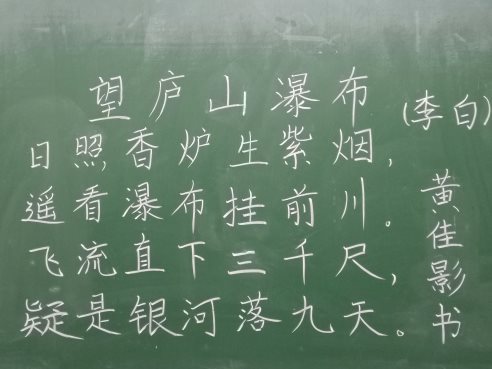 望庐山瀑布
(李白)
日照香炉生紫烟,
遥看瀑布挂前川。
飞流直下三千尺,
疑是银河落九天。
黄佳影书